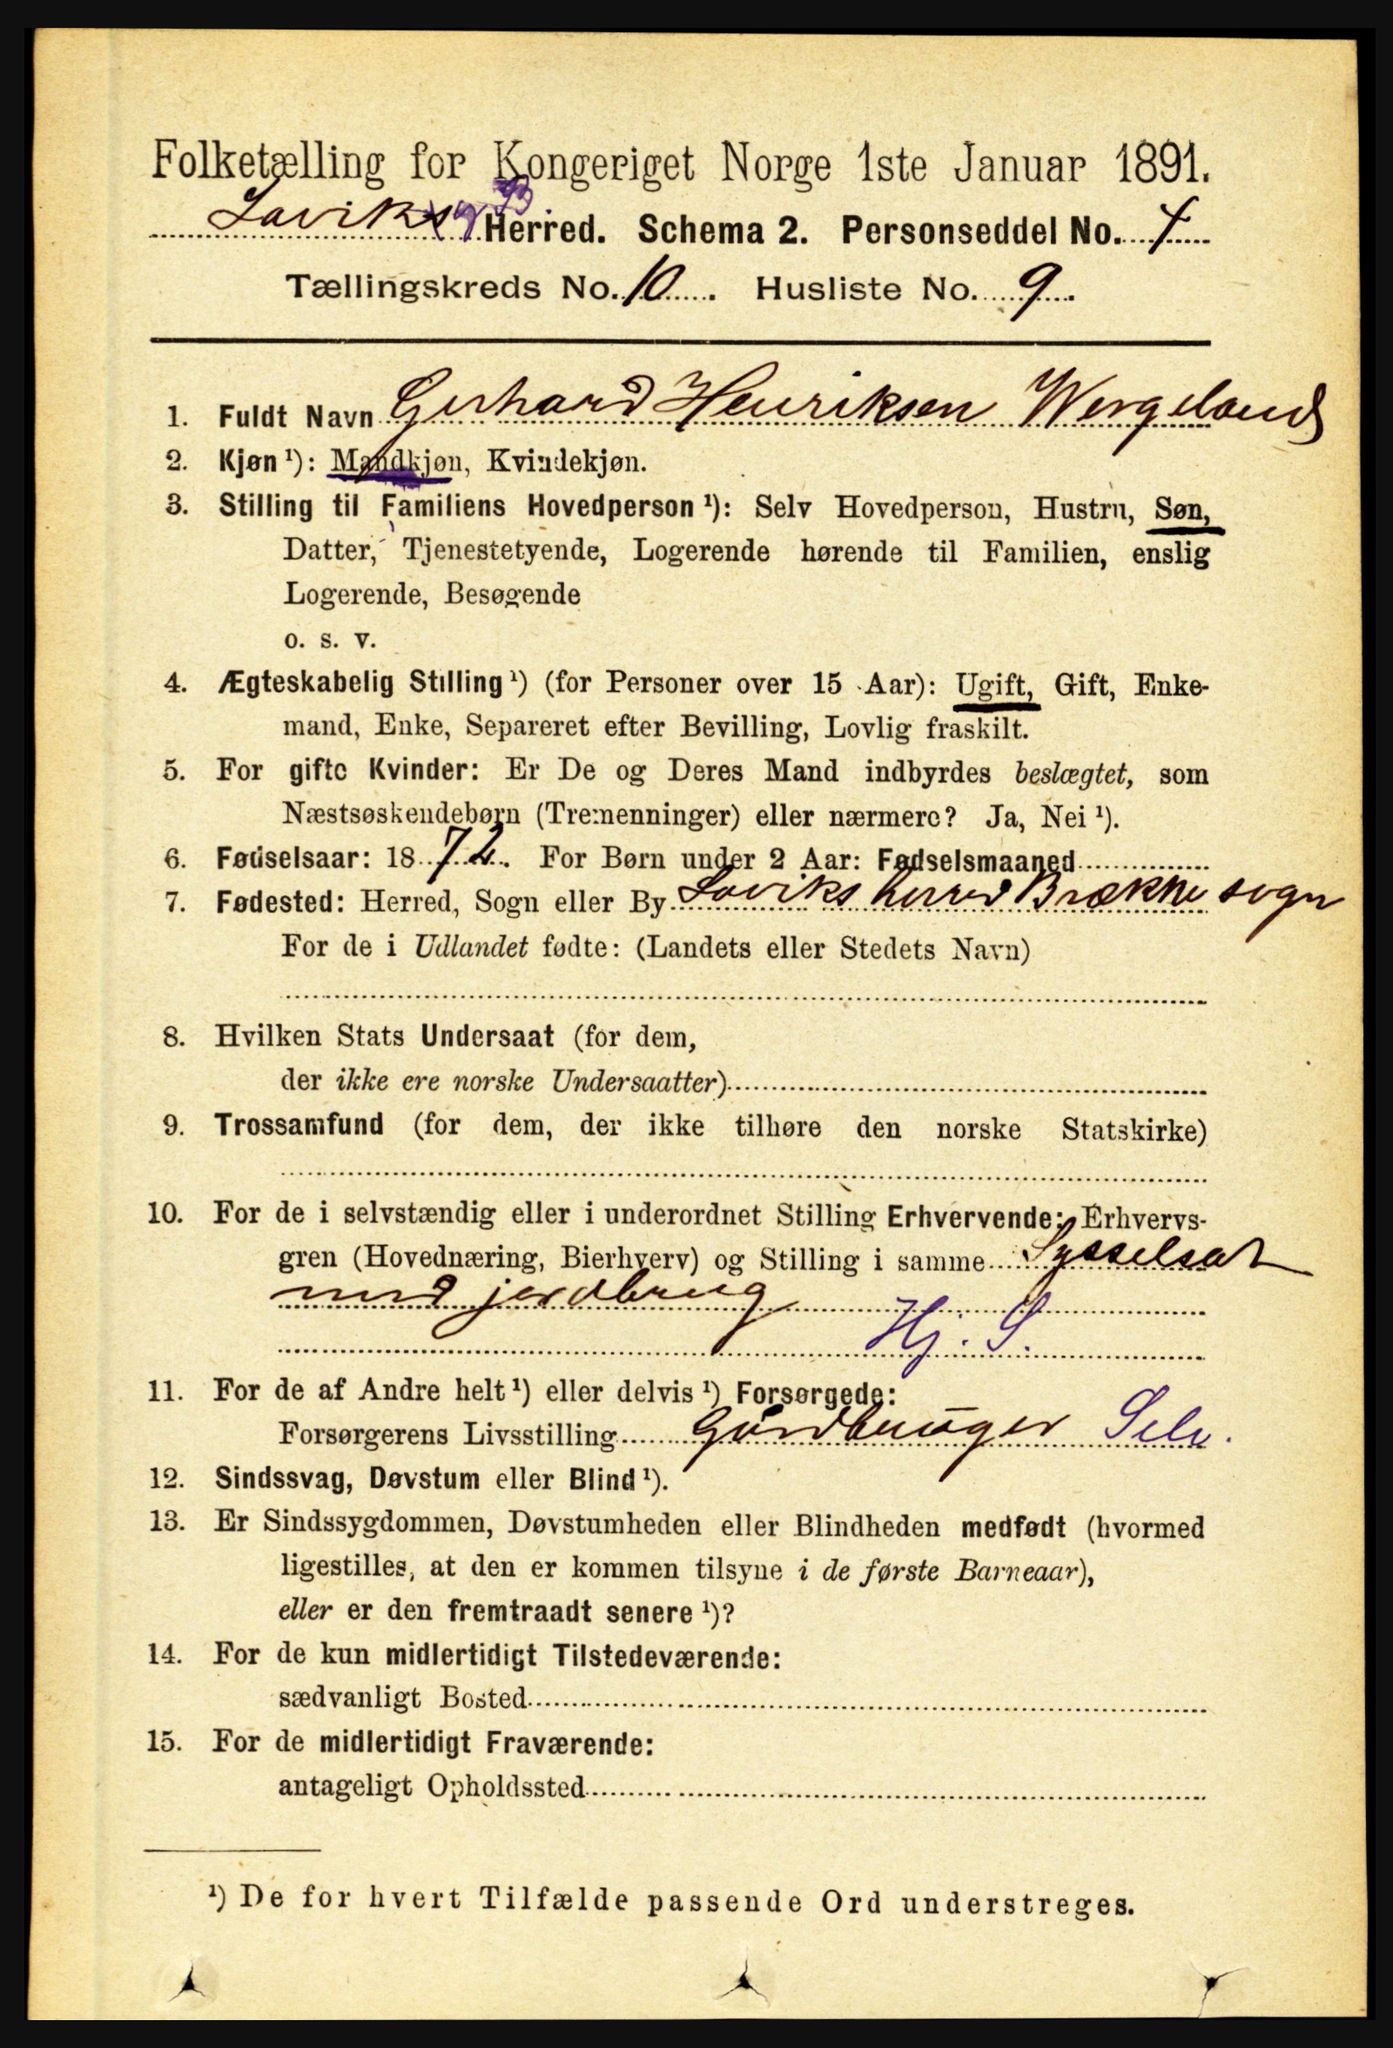 Folketælling for Kongeriget Norge 1ste Januar 1891.
Laviks og B. Herred. Schema 2. Personseddel No. 4
Tællingskreds No. 10. Husliste No. 9.
1. Fuldt Navn Gerhard Henriksen Wergeland
2. Kjøn ¹): Mandkjøn, Kvindekjøn.
3. Stilling til Familiens Hovedperson ¹): Selv Hovedperson, Hustru, Søn,
Datter, Tjenestetyende, Logerende hørende til Familien, enslig
Logerende, Besøgende
o. s. v.
4. Ægteskabelig Stilling ¹) (for Personer over 15 Aar): Ugift, Gift, Enke-
mand, Enke, Separeret efter Bevilling, Lovlig fraskilt.
5. For gifte Kvinder: Er De og Deres Mand indbyrdes beslægtet, som
Næstsøskendebørn (Tremenninger) eller nærmere? Ja, Nei ¹).
6. Fødselsaar: 1872. For Børn under 2 Aar: Fødselsmaaned
7. Fødested: Herred, Sogn eller By Laviks herred Brække sogn
For de i Udlandet fødte: (Landets eller Stedets Navn)
8. Hvilken Stats Undersaat (for dem,
der ikke ere norske Undersaatter)
9. Trossamfund (for dem, der ikke tilhøre den norske Statskirke)
10. For de i selvstændig eller i underordnet Stilling Erhvervende: Erhvervs-
gren (Hovednæring, Bierhverv) og Stilling i samme Sysselsat
med jordbrug
Hj. S.
11. For de af Andre helt ¹) eller delvis ¹) Forsørgede:
Forsørgerens Livsstilling Gårdbruger Selv.
12. Sindssvag, Døvstum eller Blind ¹).
13. Er Sindssygdommen, Døvstumheden eller Blindheden medfødt (hvormed
ligestilles, at den er kommen tilsyne i de første Barneaar),
eller er den fremtraadt senere ¹)?
14. For de kun midlertidigt Tilstedeværende:
sædvanligt Bosted
15. For de midlertidigt Fraværende:
antageligt Opholdssted
¹) De for hvert Tilfælde passende Ord understreges.